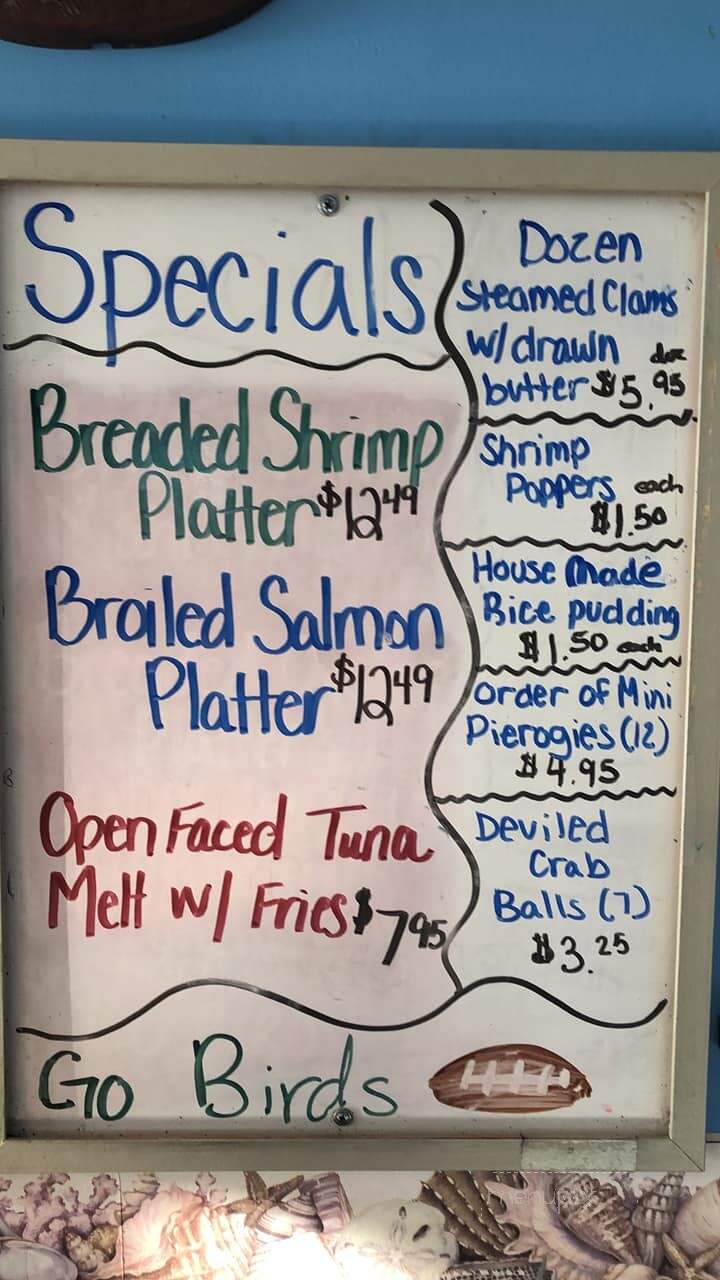 Specials
Breaded Shrimp
Platter $12.49
Broiled Salmon
Platter $12.49
Open Faced Tuna
Melt w/ Fries $7.95
Dozen
Steamed Clams
w/ drawn doz
butter $5.95
Shrimp
Poppers each
$1.50
House Made
Rice pudding
$1.50 each
Order of Mini
Pierogies (12)
$4.95
Deviled
Crab
Balls (7)
$3.25
Go Birds